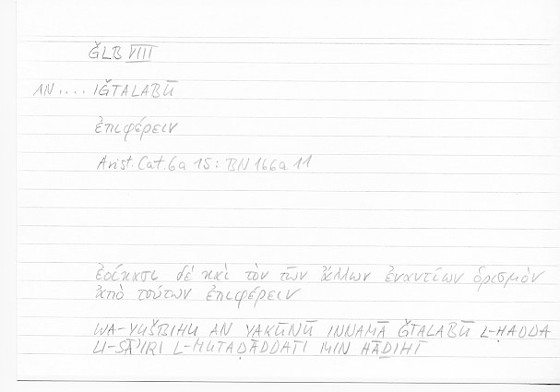 ǦLB VIII
AN .... IǦTALABŪ
ἐπιφέρειν
Arist. Cat. 6a 15 : BN 166a 11
ἐοίκασι δέ καὶ τὸν τῶν ἄλλων ἐναντίων ὁρισμὸν
ἀπὸ τούτων ἐπιφέρειν
WA-YUŠBIHU AN YAKŪNŪ INNAMĀ ǦTALABŪ L-ḤADDA
LI-SĀʾIRI L-MUTAḌĀDDATI MIN HĀḎIHĪ